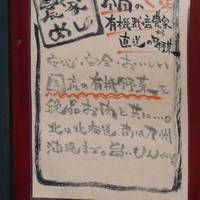 農家
めし
全国の
有機栽培農家から
直送の野菜
安心・安全・おいしい
国産の有機野菜を
絶品お肉と共に…。
北は北海道、南は九州
沖縄まで。旨いもん